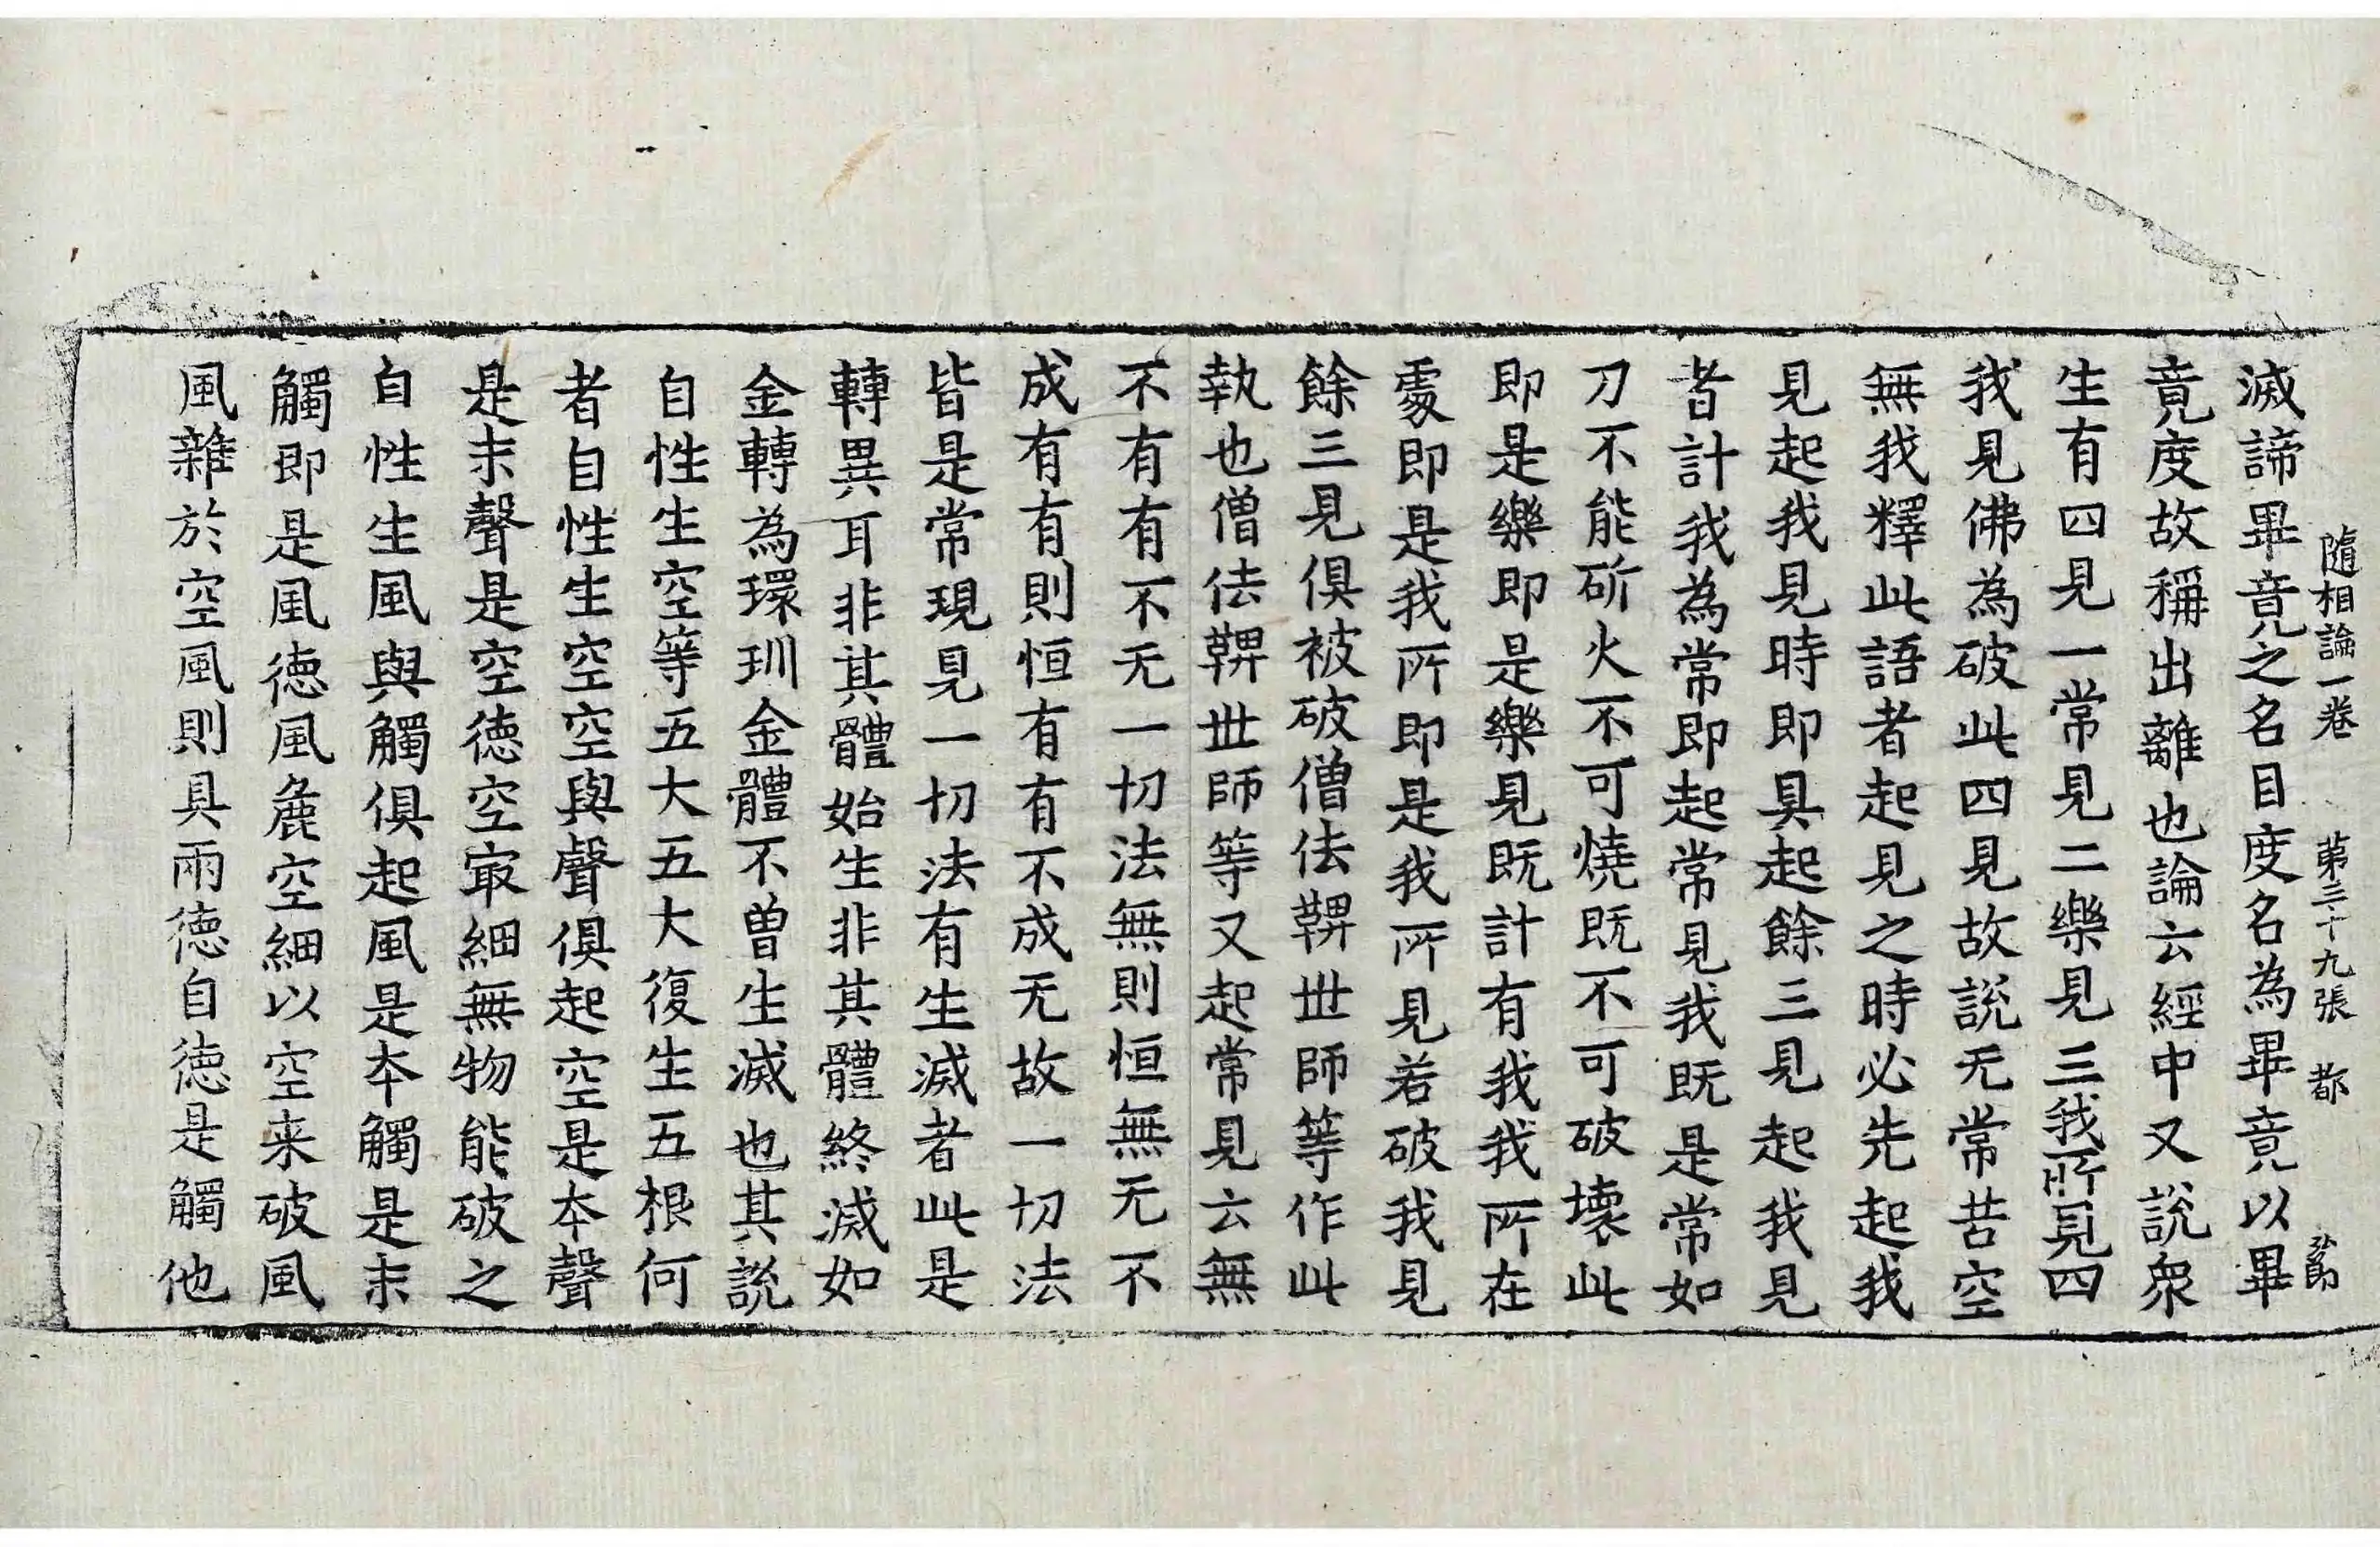 隨相論一卷 第三十九張 都
滅諦畢竟之名目度名為畢竟以畢
竟度故稱出離也論云經中又說衆
生有四見一常見二樂見三我所見四
我見佛為破此四見故說无常苦空
無我釋此語者起見之時必先起我
見起我見時即具起餘三見起我見
者計我為常即起常見我既是常如
刀不能斫火不可燒既不可破壞此
即是樂即是樂見既計有我我所在
處即是我所即是我所見若破我見
餘三見俱被破僧佉鞞世師等作此
執也僧佉鞞世師等又起常見云無
不有有不无一切法無則恒無无不
成有有則恒有有不成无故一切法
皆是常現見一切法有生滅者此是
轉異耳非其體始生非其體終滅如
金轉為環玔金體不曾生滅也其說
自性生空等五大五大復生五根何
者自性生空空與聲俱起空是本聲
是末聲是空德空冣細無物能破之
自性生風與觸俱起風是本觸是末
觸即是風德風麁空細以空来破風
風雜於空風則具兩德自德是觸他